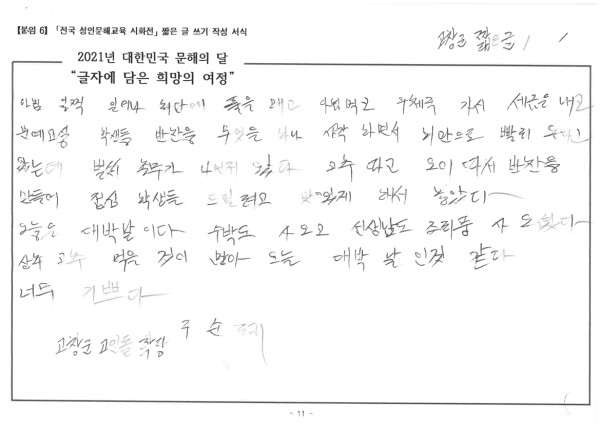 【붙임 6】「전국 성인문해교육 시화전」 짧은 글 쓰기 작성 서식
고창군 짧은글 1
2021년 대한민국 문해의 달
"글자에 담은 희망의 여정"
아침 일찍 일어나 화단에 풀을 매고 아침먹고 우체국 가서 세금을 내고
문예교실 학생들 반찬을 무엇을 하나 생각 하면서 집안으로 빨리
왔는데 벌써 가 았다 고추 따고 오이 따서 반찬을
만들어 점심 학생들 드릴려고 맛있게 해서 놓았다
오늘은 대박날이다 수박도 사오고 선생님도 조리퐁 사 오셨다
먹을 것이 많아 오늘 대박 날 인것 같다
너무 기쁘다
고창군 고인돌 학당 구순
- 11 -